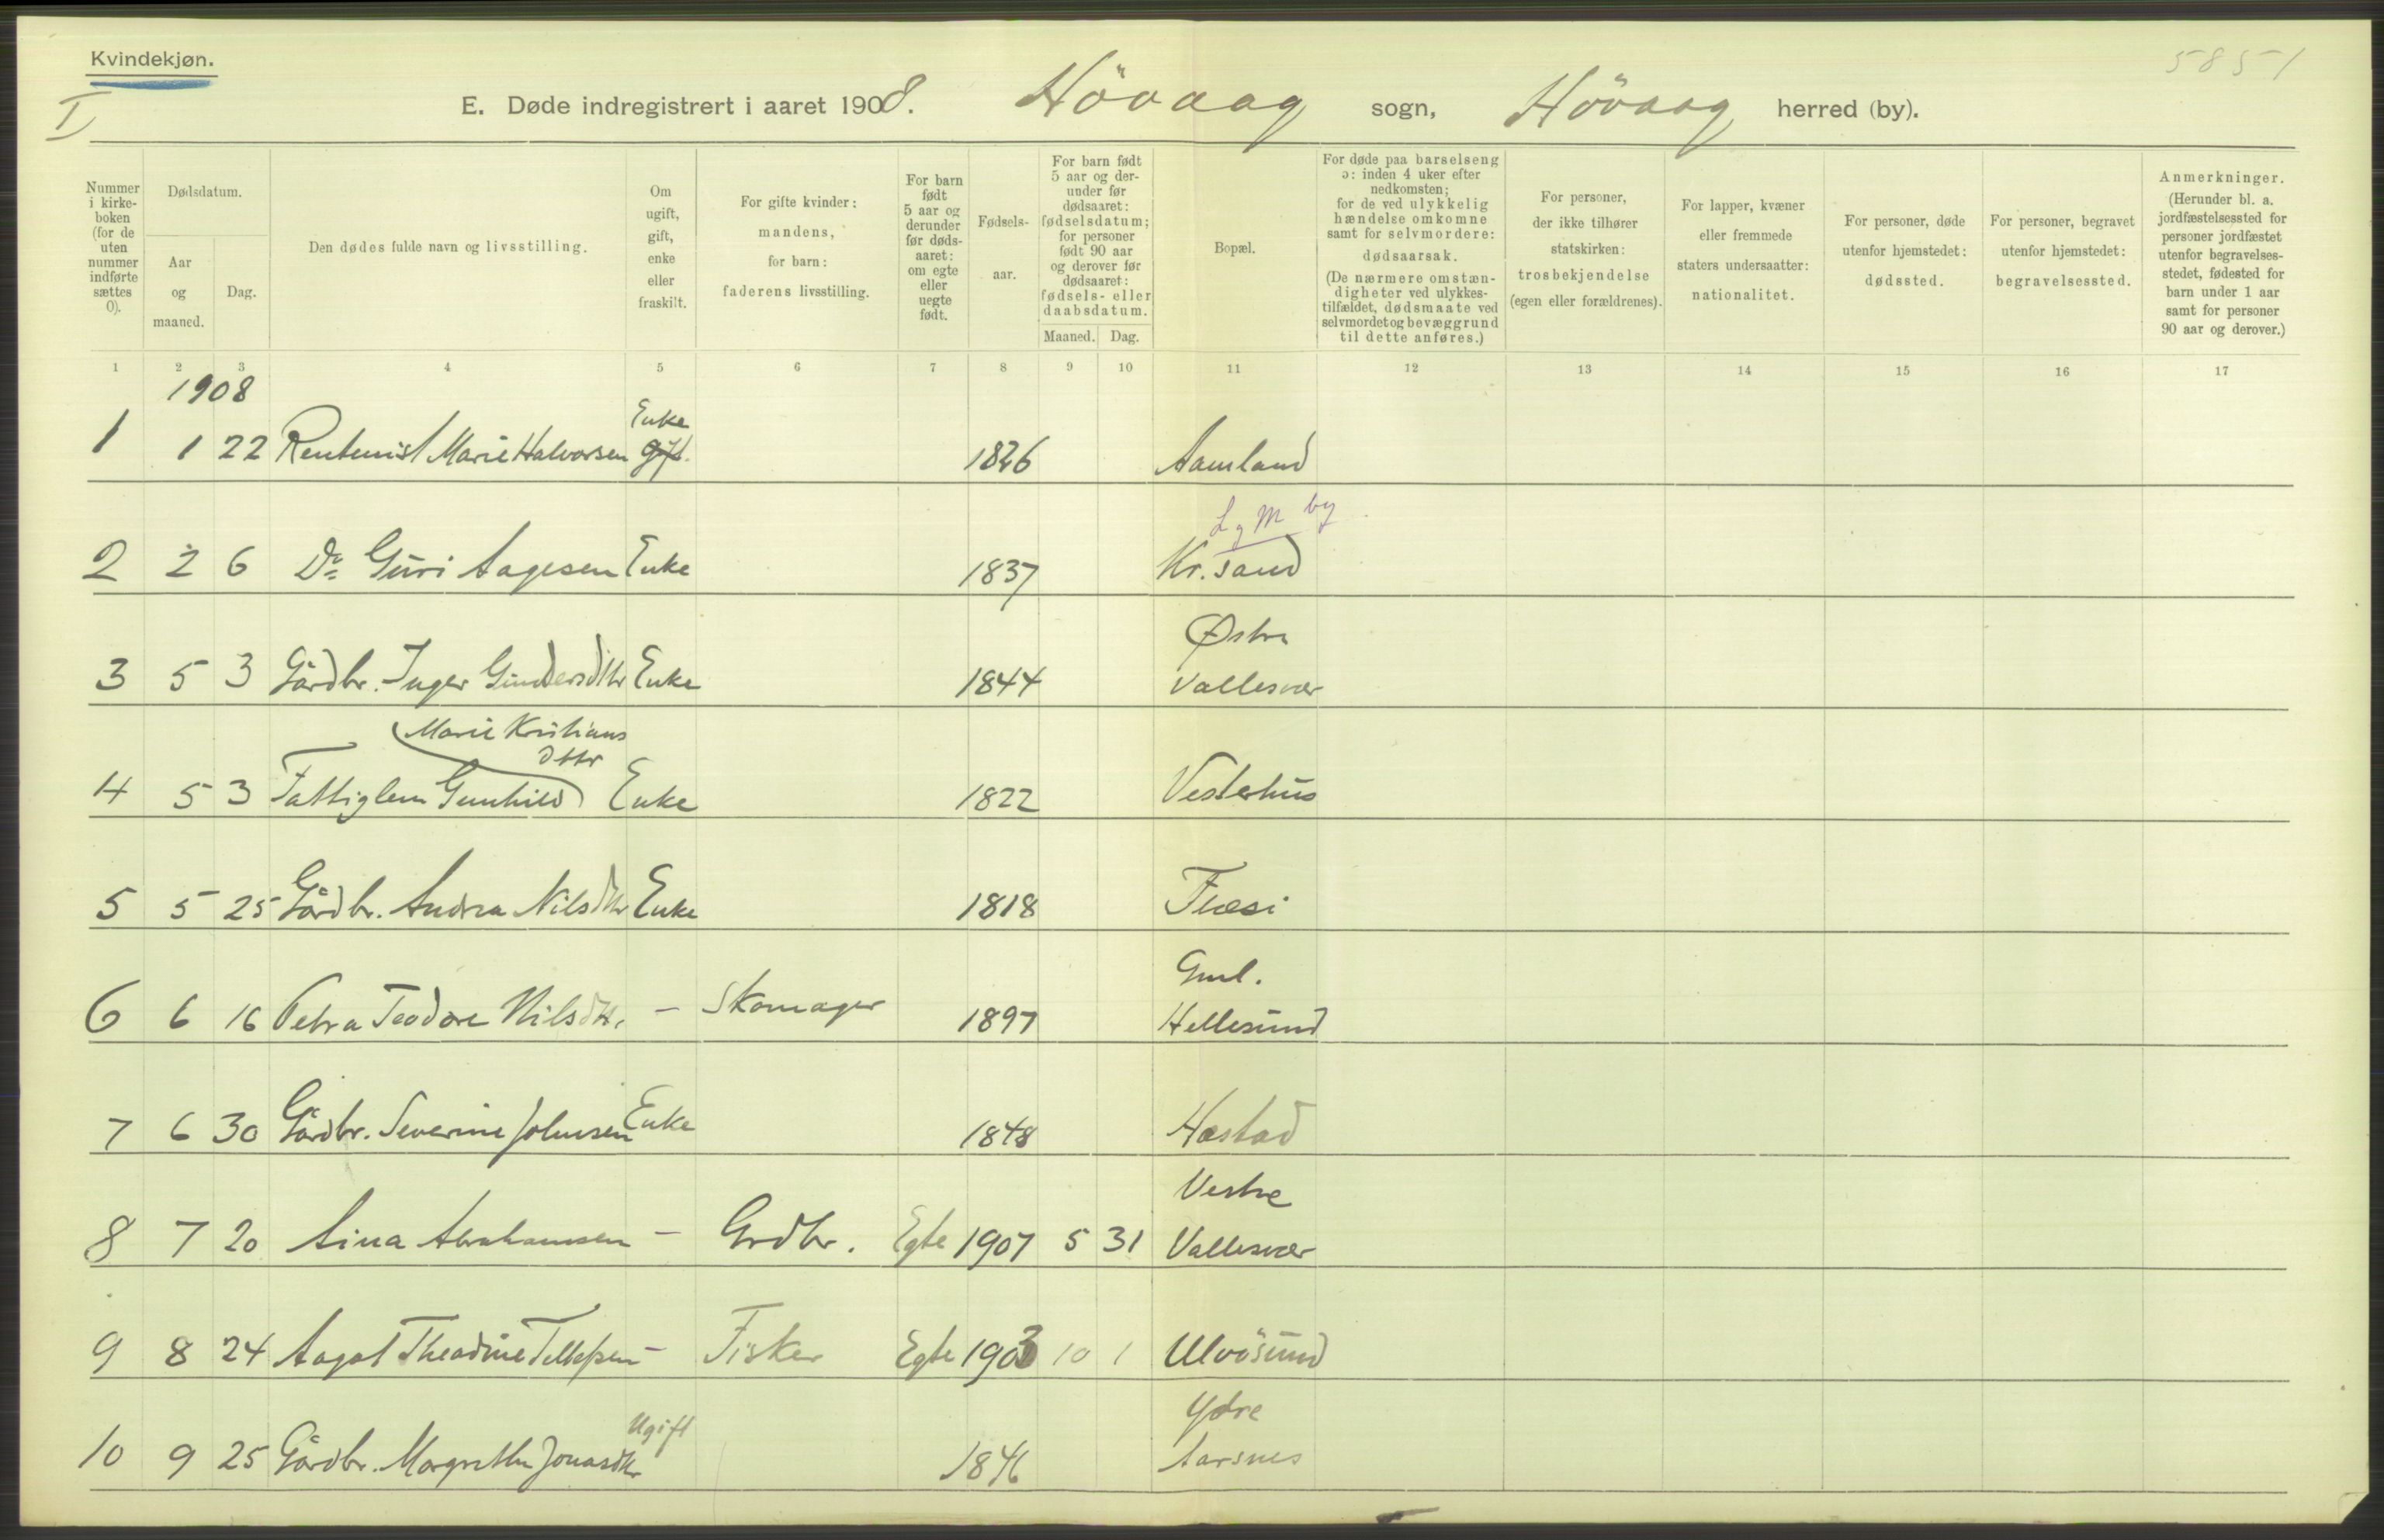 Kvindekjøn.
I
5851
E. Døde indregistrert i aaret 1908. Hövaag sogn, Hövaag herred (by).
Nummer i kirkeboken (for de uten nummer indførte sættes 0).
Dødsdatum.
Aar og maaned.
Dag.
Den dødes fulde navn og livsstilling.
Om ugift, gift, enke eller fraskilt.
For gifte kvinder: mandens, for barn: faderens livsstilling.
For barn født 5 aar og derunder før dødsaaret: om egte eller uegte født.
Fødselsaar.
For barn født 5 aar og derunder før dødsaaret: fødselsdatum; for personer født 90 aar og derover før dødsaaret: fødsels- eller daabsdatum.
Maaned. Dag.
Bopæl.
For døde paa barselseng ɔ: inden 4 uker efter nedkomsten; for de ved ulykkelig hændelse omkomne samt for selvmordere: dødsaarsak. (De nærmere omstændigheter ved ulykkestilfældet, dødsmaate ved selvmordet og bevæggrund til dette anføres.)
For personer, der ikke tilhører statskirken: trosbekjendelse (egen eller forældrenes).
For lapper, kvæner eller fremmede staters undersaatter: nationalitet.
For personer, døde utenfor hjemstedet: dødssted.
For personer, begravet utenfor hjemstedet: begravelsessted.
Anmerkninger. (Herunder bl. a. jordfæstelsessted for personer jordfæstet utenfor begravelsesstedet, fødested for barn under 1 aar samt for personer 90 aar og derover.)
1 2 3 4 5 6 7 8 9 10 11 12 13 14 15 16 17
1908
Enke
1 1 22 Rentenist Marie Halvorsen gift. 1826 Aamland
L g M by
2 2 6 Do Guri Aagesen Enke 1837 Kr.sand
Østre
3 5 3 Gårdbr. Inger Gundersdttr Enke 1844 Vallesvær
Marie Kristians
dttr
4 5 3 Fattiglem Gunhild Enke 1822 Vesterhus
5 5 25 Gårdbr. Andrea Nilsdttr Enke 1818 Fuesi
Gml.
6 6 16 Petra Teodore Nilsdtr. - Skomager 1897 Hellesund
7 6 30 Gårdbr. Severine Johnsen Enke 1848 Hæstad
Vestre
8 7 20 Aina Abrahamsen - Grdbr. Egte 1907 5 31 Vallesvær
9 8 24 Aagot Theodine Tellefsen - Fisker Egte 1903 10 1 Ulvösund
Ydre
Ugift
10 9 25 Gårdbr. Margrethe Jonasdttr 1846 Aarsnes